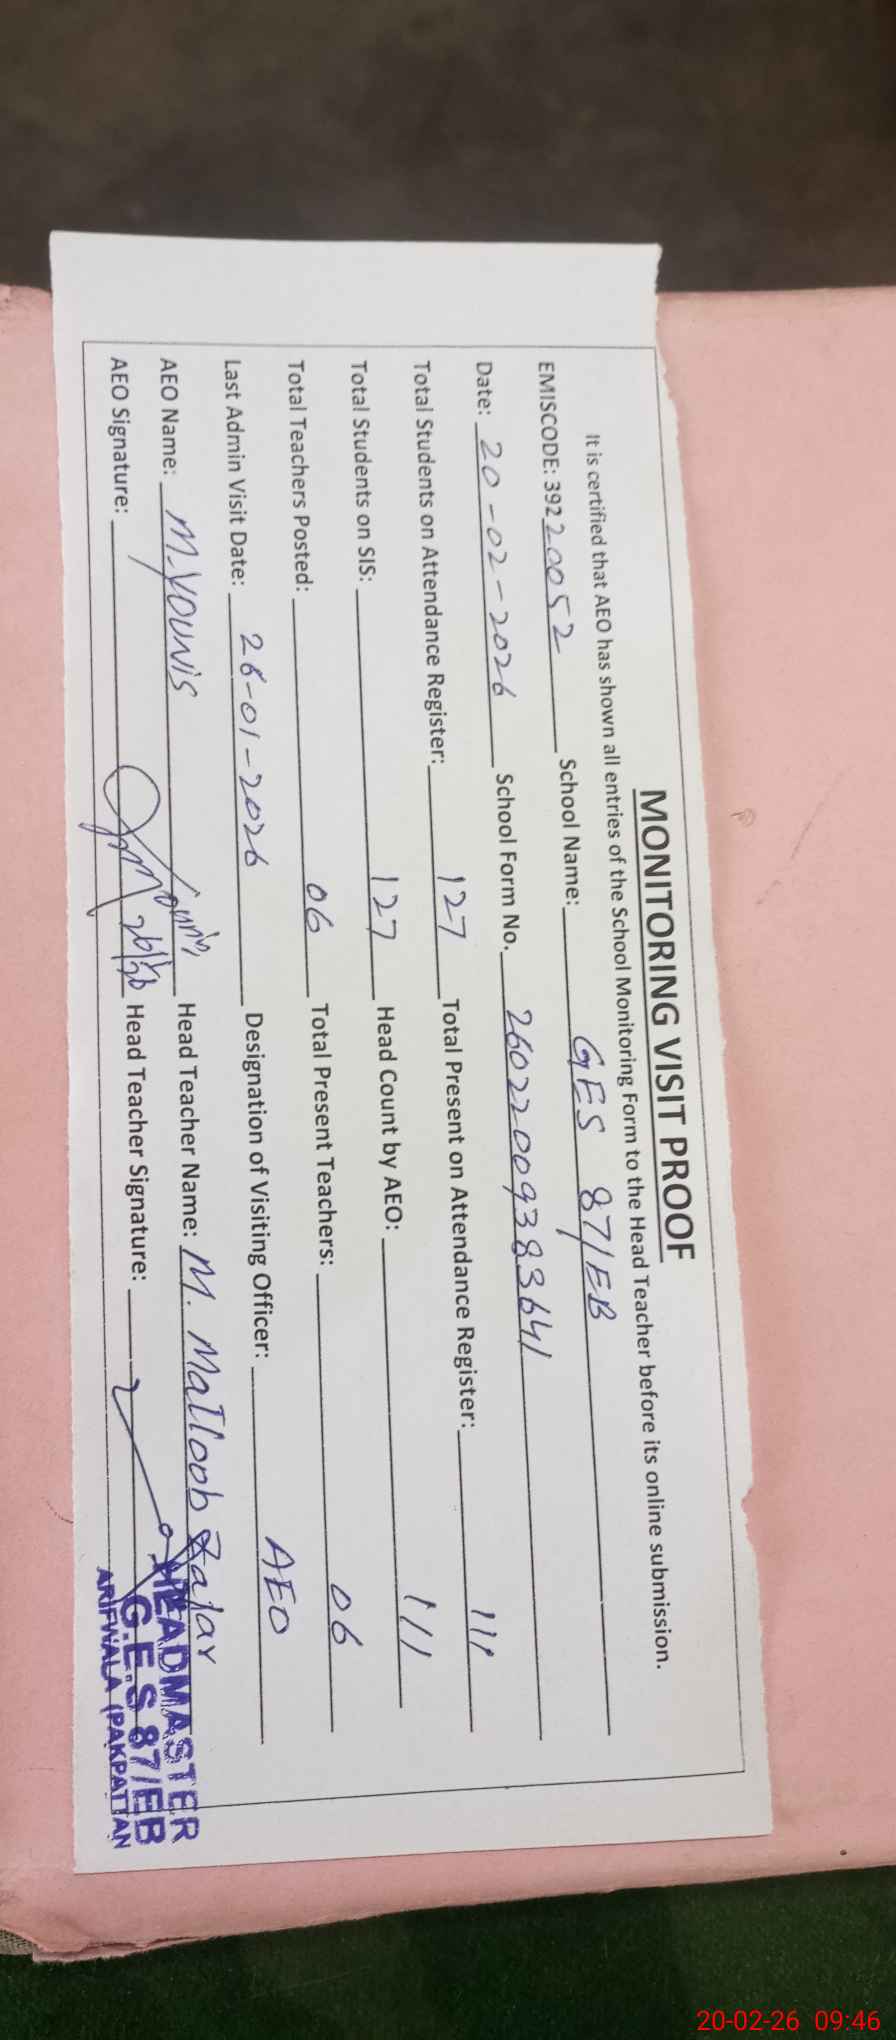 MONITORING VISIT PROOF
It is certified that AEO has shown all entries of the School Monitoring Form to the Head Teacher before its online submission.
EMISCODE: 39220052 School Name: GES 87/EB
Date: 20-02-2026 School Form No. 26022009383641
Total Students on Attendance Register: 127 Total Present on Attendance Register: 111
Total Students on SIS: 127 Head Count by AEO: 111
Total Teachers Posted: 06 Total Present Teachers: 06
Last Admin Visit Date: 26-01-2026 Designation of Visiting Officer: AEO
AEO Name: M. YOUNIS Head Teacher Name: M. Matloob Zafar
AEO Signature: Head Teacher Signature:
HEADMASTER
G.E.S 87/EB
ARIFWALA (PAKPATTAN
20-02-26 09:46